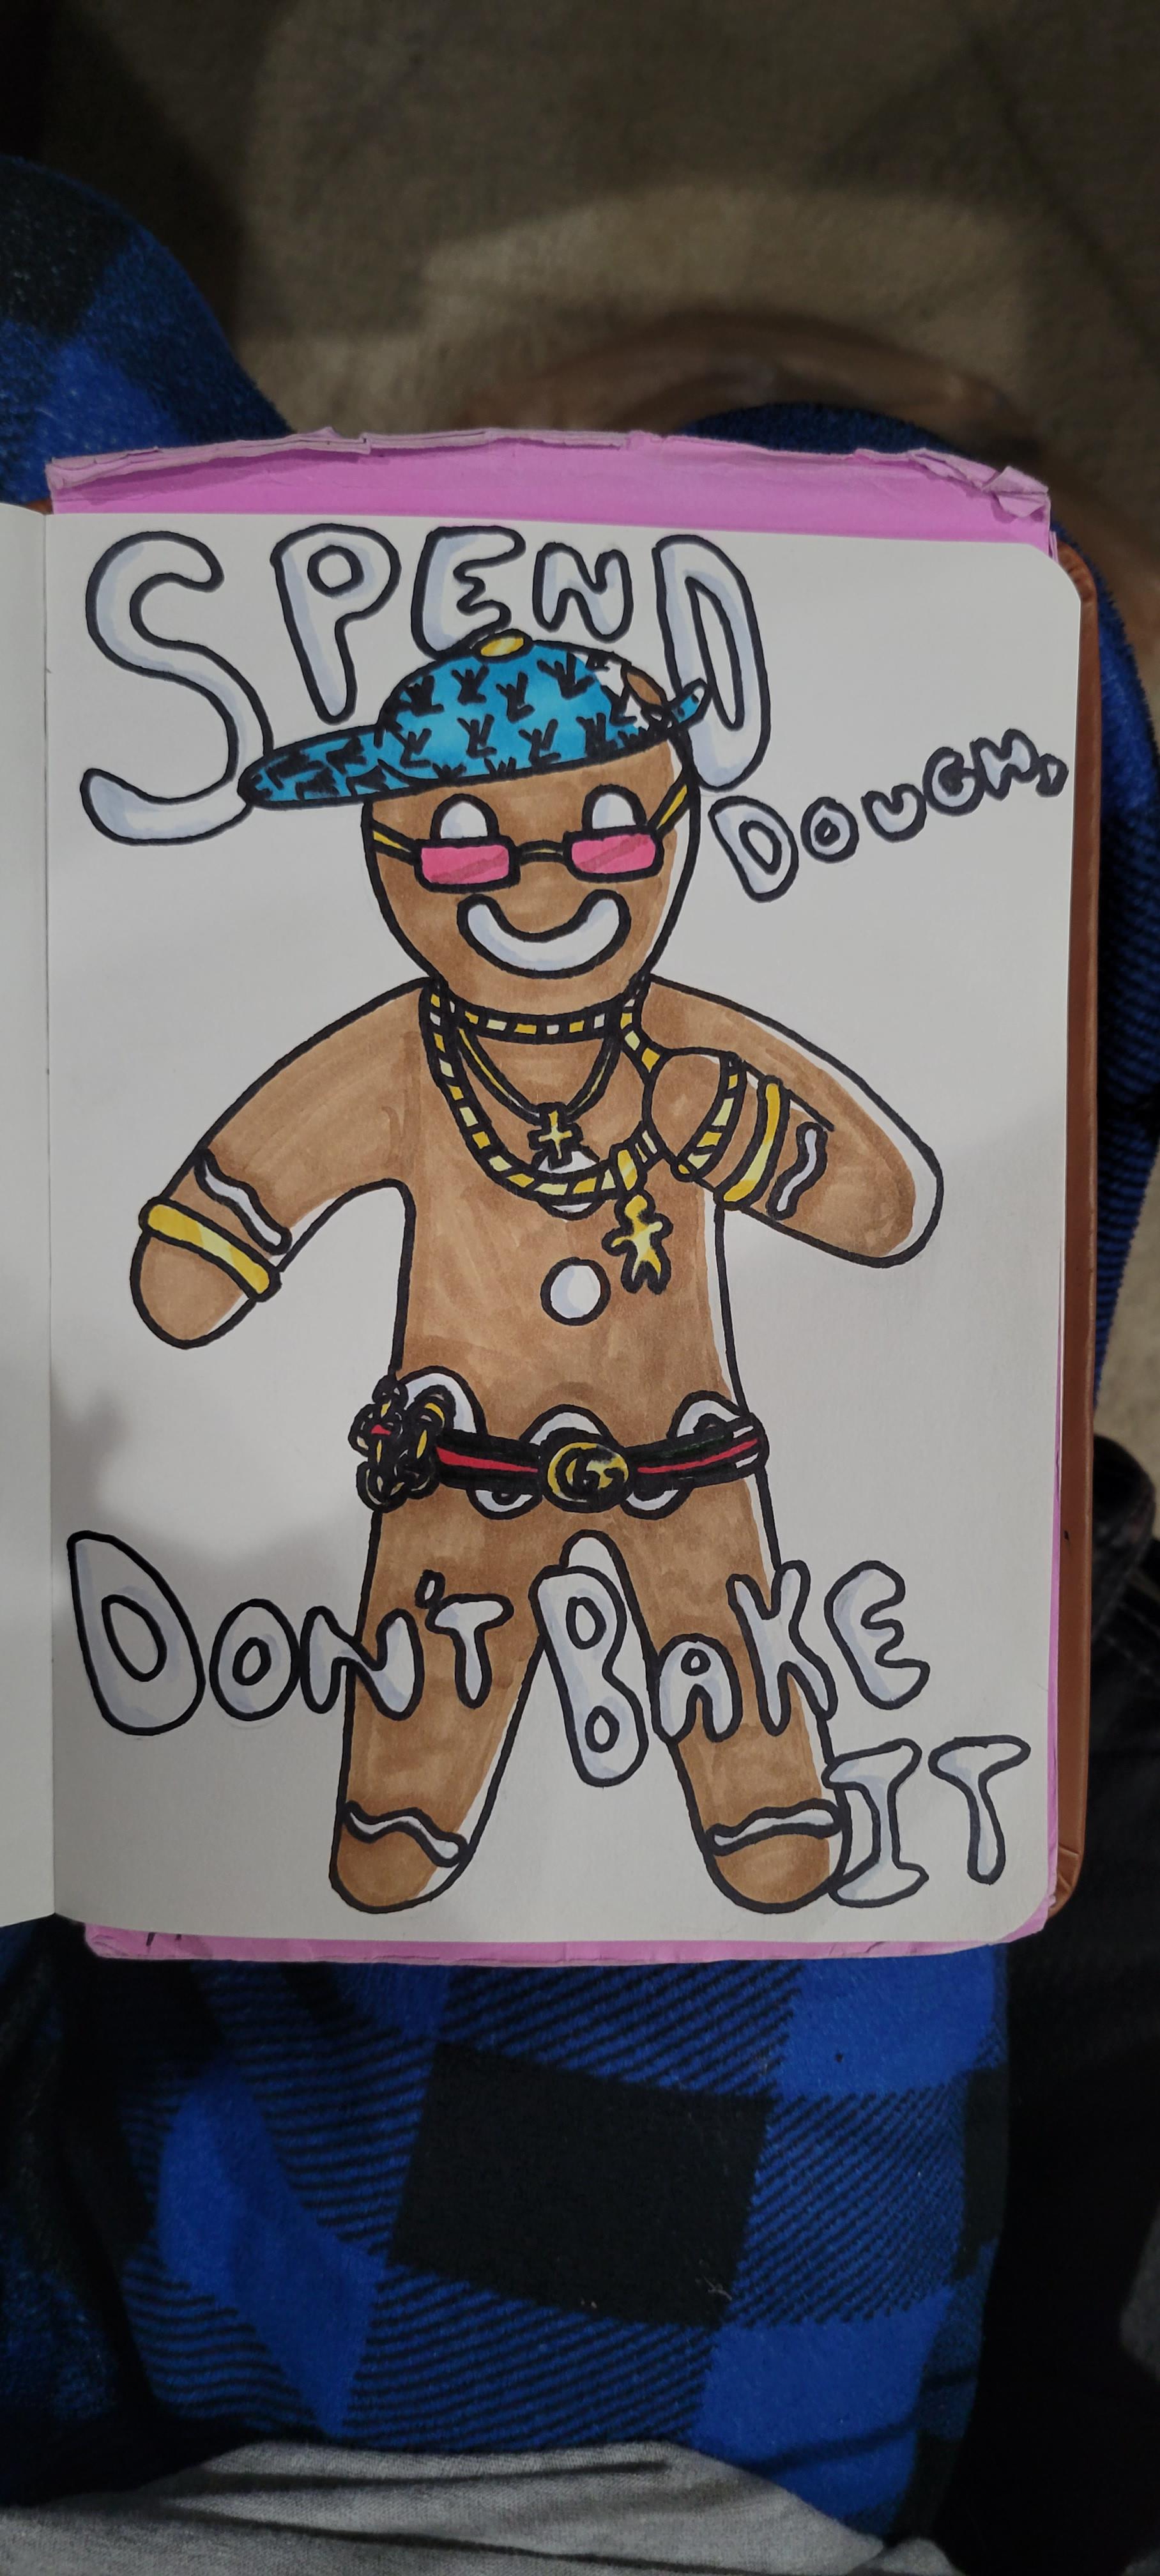 SPEND
DOUGH,
DON'T BAKE
IT